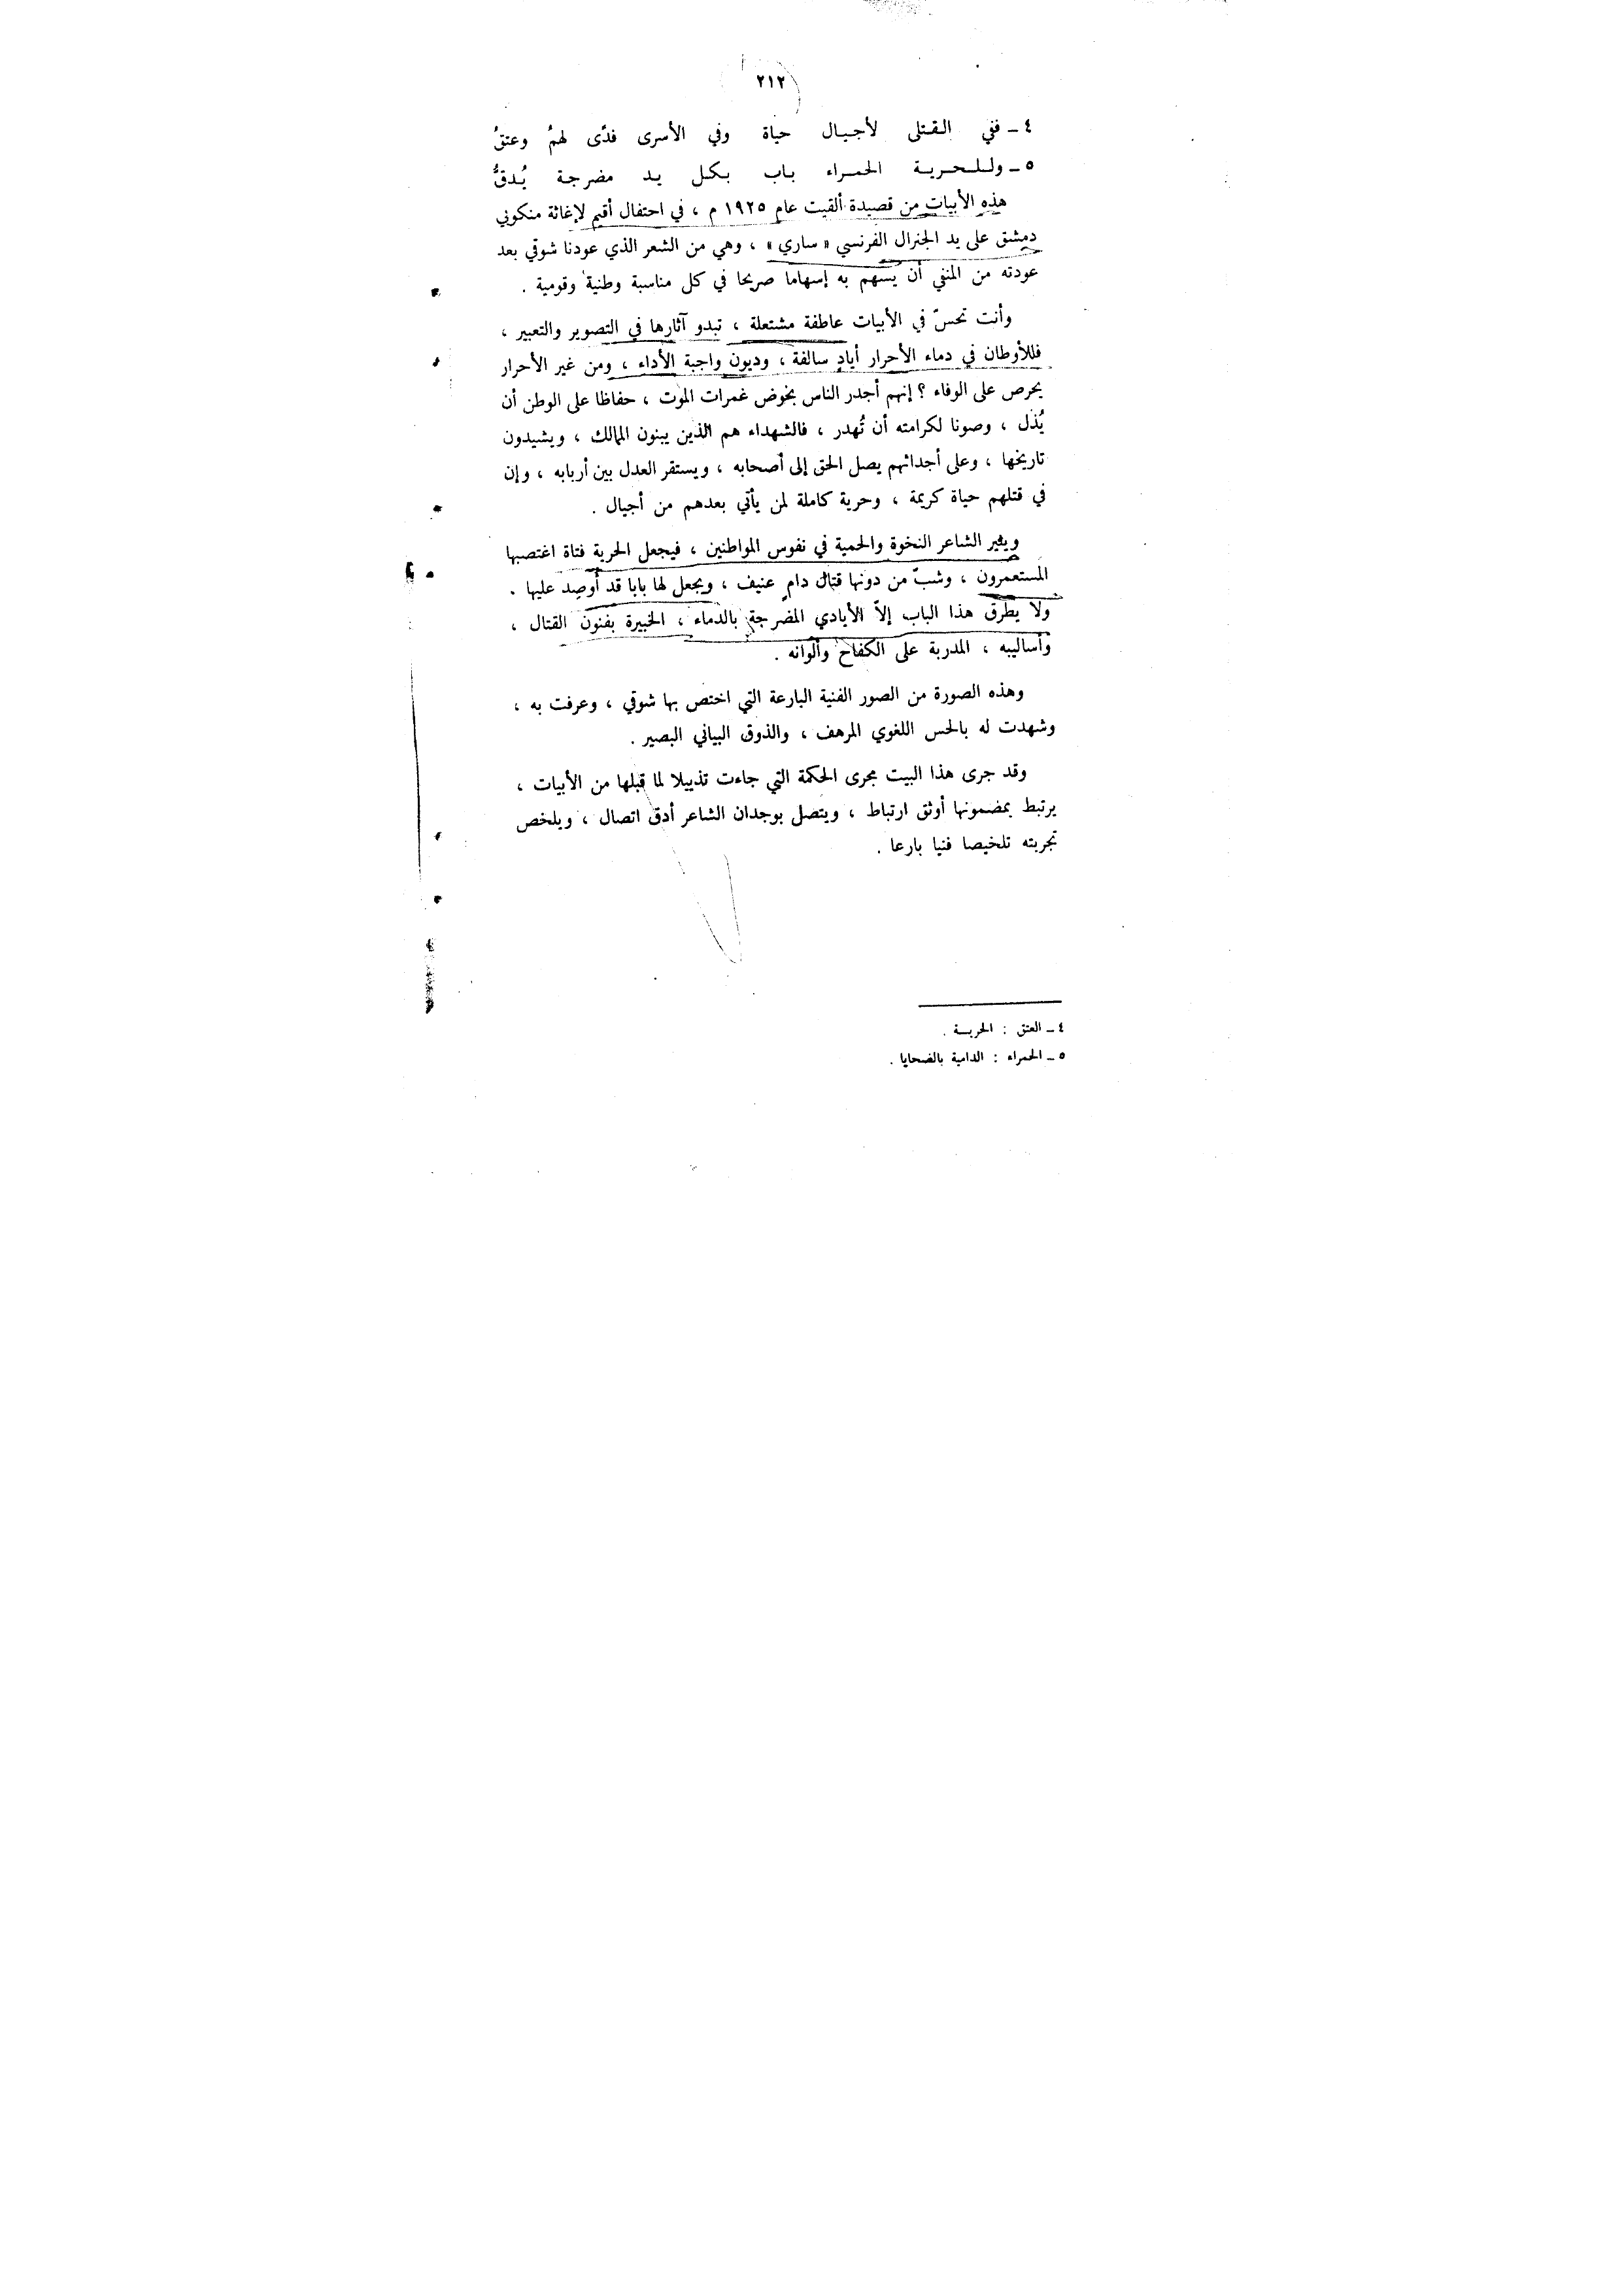 ٢١٢
٤ ـ ففي القتلى لأجيال حياة وفي الأسرى فدًى لهمُ وعتقُ
٥ ـ وللحرية الحمراء باب بكل يد مضرجة يُدقُّ
هذه الأبيات من قصيدة ألقيت عام ١٩٢٥ م ، في احتفال أقيم لإغاثة منكوبي
دمشق على يد الجنرال الفرنسي « ساري » ، وهي من الشعر الذي عودنا شوقي بعد
عودته من المنفي أن يسهم به إسهاما صريحا في كل مناسبة وطنية وقومية .
وأنت تحسّ في الأبيات عاطفة مشتعلة ، تبدو آثارها في التصوير والتعبير ،
فللأوطان في دماء الأحرار أيادٍ سالفة ، وديون واجبة الأداء ، ومن غير الأحرار
يحرص على الوفاء ؟ إنهم أجدر الناس بخوض غمرات الموت ، حفاظا على الوطن أن
يُذل ، وصونا لكرامته أن تُهدر ، فالشهداء هم الذين يبنون الممالك ، ويشيدون
تاريخها ، وعلى أجداثهم يصل الحق إلى أصحابه ، ويستقر العدل بين أربابه ، وإن
في قتلهم حياة كريمة ، وحرية كاملة لمن يأتي بعدهم من أجيال .
ويثير الشاعر النخوة والحمية في نفوس المواطنين ، فيجعل الحرية فتاة اغتصبها
المستعمرون ، وشبّ من دونها قتال دامٍ عنيف ، ويجعل لها بابا قد أوصد عليها .
ولا يطرق هذا الباب إلاّ الأيادي المضرجة بالدماء ، الخبيرة بفنون القتال ،
وأساليبه ، المدربة على الكفاح وألوانه .
وهذه الصورة من الصور الفنية البارعة التي اختص بها شوقي ، وعرفت به ،
وشهدت له بالحس اللغوي المرهف ، والذوق البياني البصير .
وقد جرى هذا البيت مجرى الحكمة التي جاءت تذييلا لما قبلها من الأبيات ،
يرتبط بمضمونها أوثق ارتباط ، ويتصل بوجدان الشاعر أدق اتصال ، ويلخص
تجربته تلخيصا فنيا بارعا .
٤ ـ العتق : الحرية .
٥ ـ الحمراء : الدامية بالضحايا .